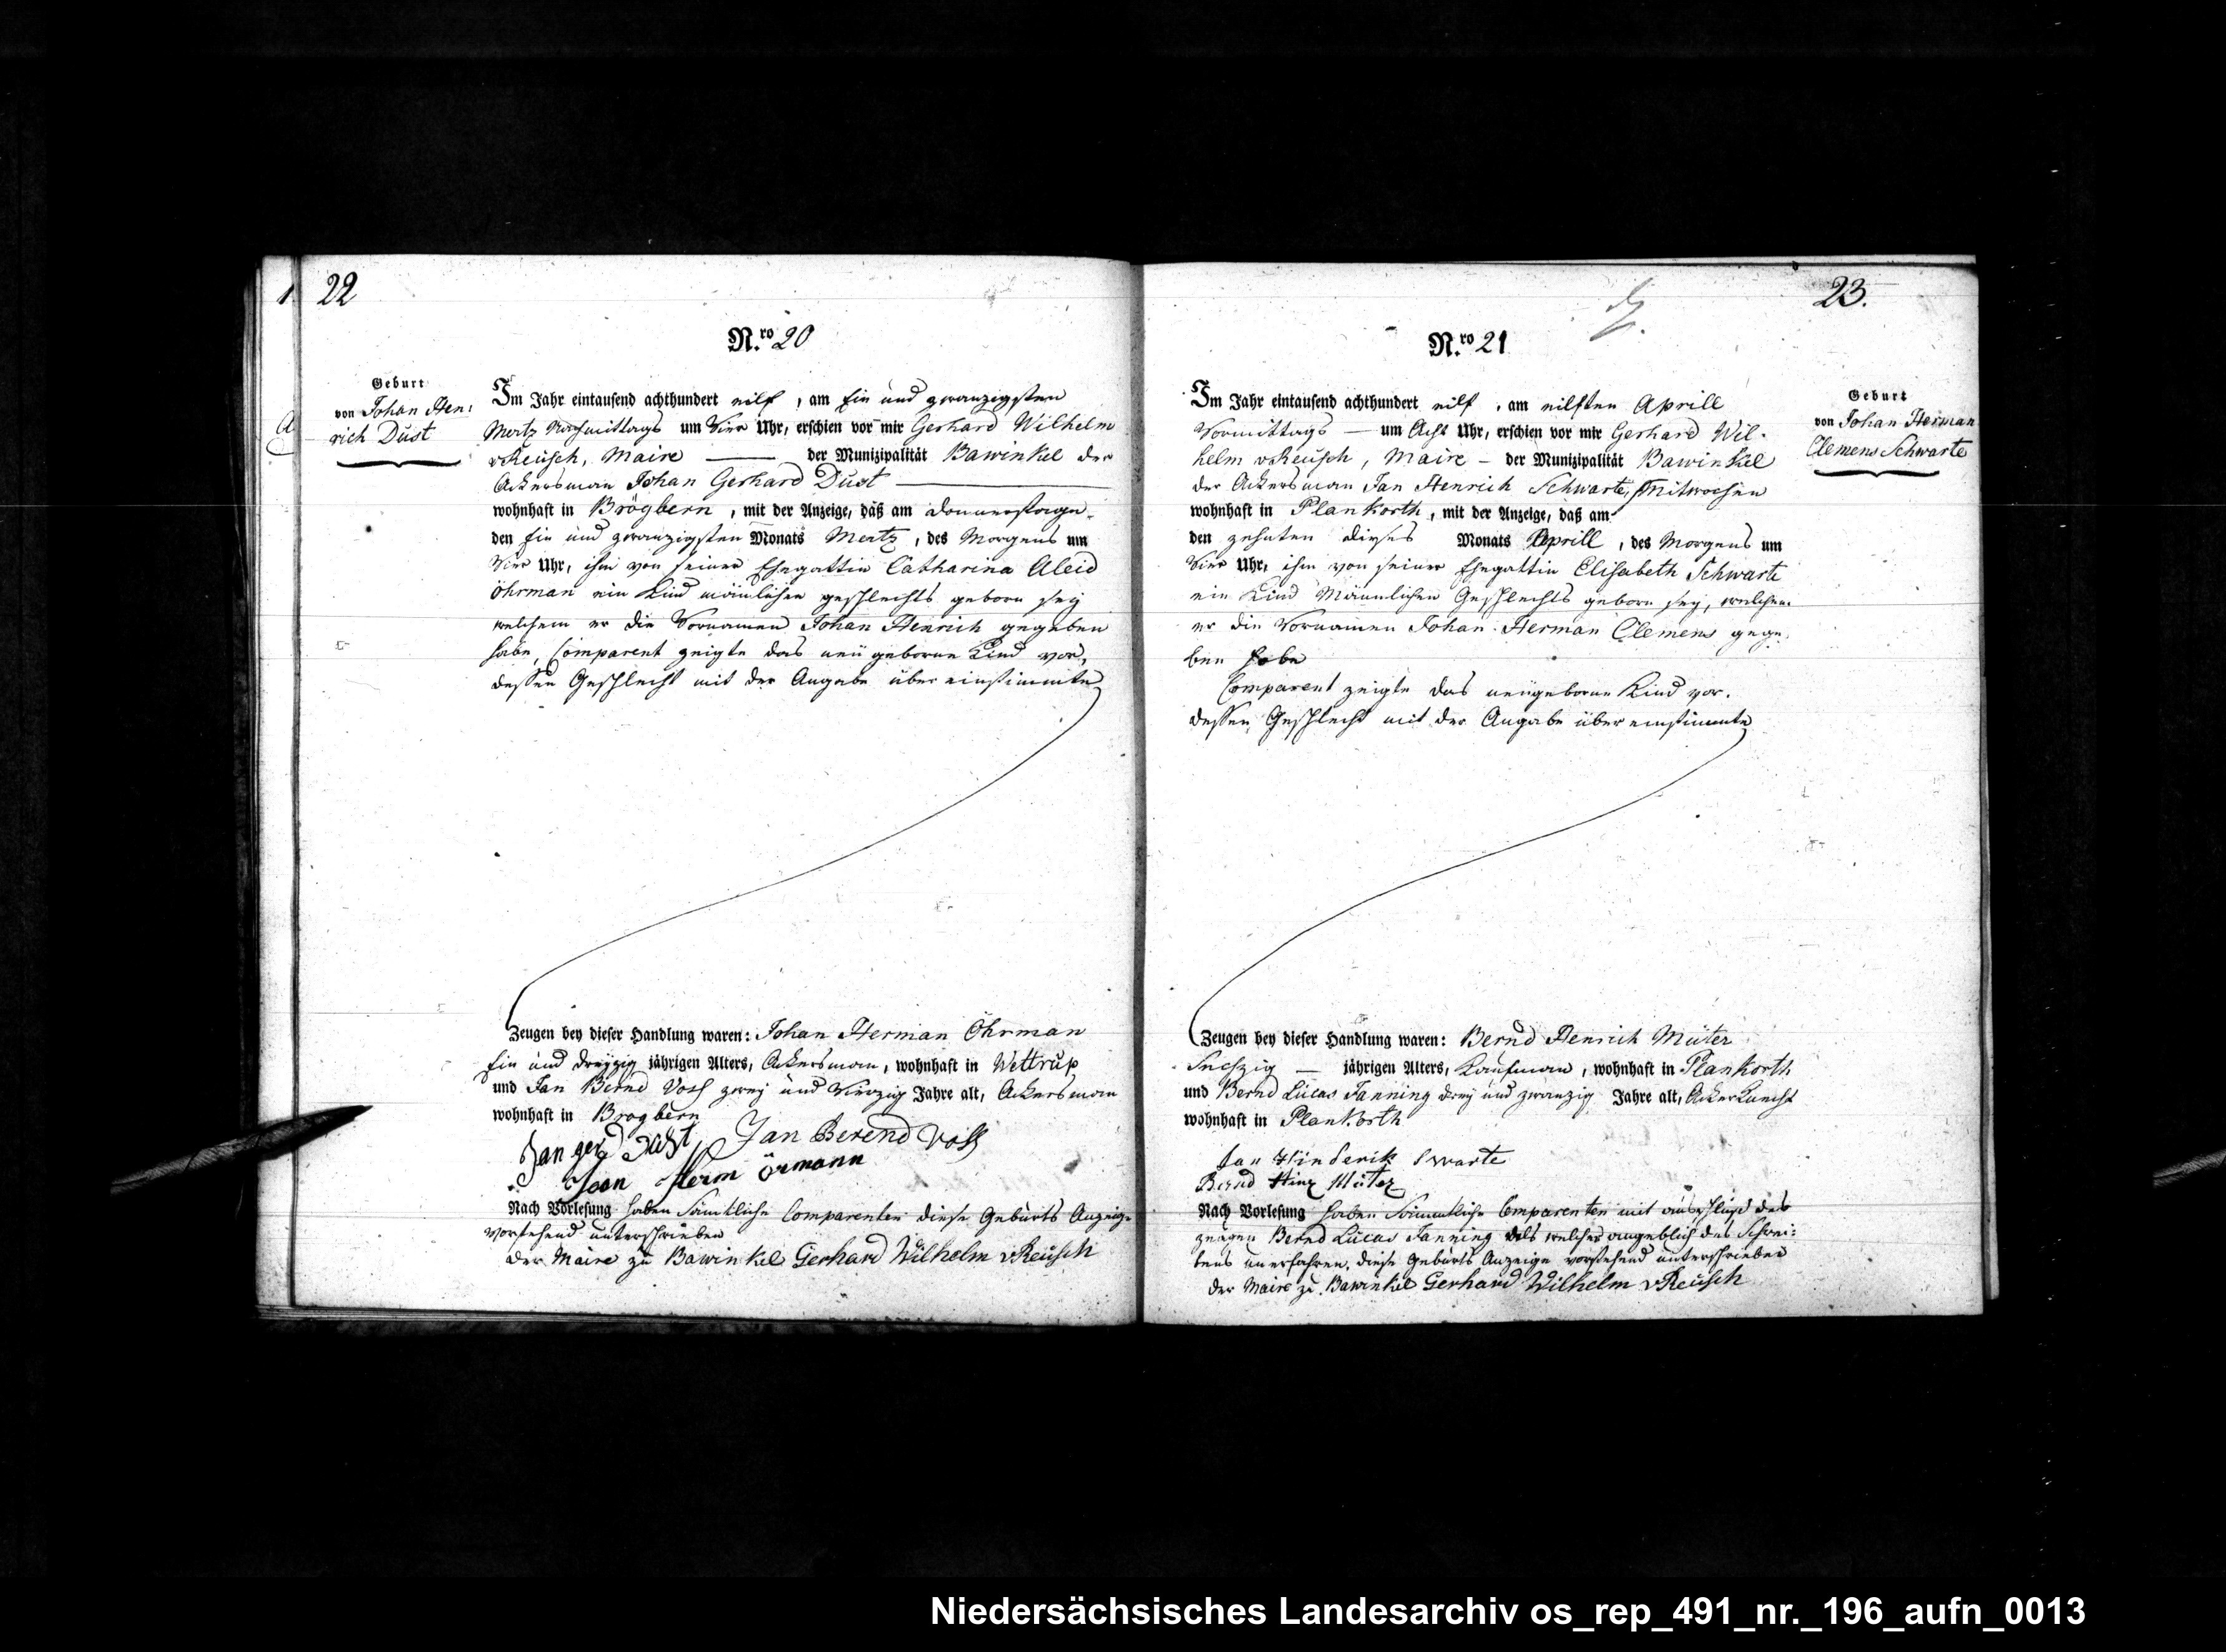 22
N.ro 20
Geburt
von Johan Hen:
rich Dust
Im Jahr eintausend achthundert eilf, am Ein und zwanzigsten
Mertz Nachmittags um Vier Uhr, erschien vor mir Gerhard Wilhelm
vReusch, Maire — der Munizipalität Bawinkel der
Ackersman Johan Gerhard Dust —
wohnhaft in Brögbern, mit der Anzeige, daß am donnerstage
den Ein und zwanzigsten Monats Mertz, des Morgens um
Vier Uhr, ihm von seiner Ehegattin Catharina Aleid
Öhrman ein Kind mänlichen geschlechts geborn sey
welchem er die Vornamen Johan Henrich gegeben
habe, Comparent zeigte das neu geborne Kind vor,
dessen Geschlecht mit der Angabe über einstimmte
Zeugen bey dieser Handlung waren: Johan Herman Öhrman
Ein und dreyzig jährigen Alters, Ackersman, wohnhaft in Wettrup
und Jan Bernd Voss zwey und Vierzig Jahre alt, Ackersman
wohnhaft in Brogbern
Jan gerd Dust Jan Berend Voss
Joan Herm örmann
Nach Vorlesung haben Sämtliche Comparenten diese Geburts Anzeige
vorstehend unterschrieben
der Maire zu Bawinkel Gerhard Wilhelm vReusch
23.
N.ro 21
Geburt
von Johan Herman
Clemens Schwarte
Im Jahr eintausend achthundert eilf, am eilften Aprill
Vormittags — um Acht Uhr, erschien vor mir Gerhard Wil-
helm vReusch, Maire – der Munizipalität Bawinkel
der Ackersman Jan Henrich Schwarte, Mitwochen
wohnhaft in Plankorth, mit der Anzeige, daß am
den zehnten dieses Monats Aprill, des Morgens um
Vier Uhr, ihm von seiner Ehegattin Elisabeth Schwarte
ein Kind Männlichen Geschlechts geborn sey, welchem
er die Vornamen Johan Herman Clemens gege-
ben habe
Comparent zeigte das neugeborne Kind vor.
dessen Geschlecht mit der Angabe über einstimmte
Zeugen bey dieser Handlung waren: Bernd Henrich Müter
Sechzig — jährigen Alters, Kaufman, wohnhaft in Plankorth
und Bernd Lucas Janning drey und zwanzig Jahre alt, Ackerknecht
wohnhaft in Plankorth
Jan Hinderik Swarte
Bernd Hinr Müter
Nach Vorlesung haben Sämmtliche Comparenten mit ausschluß des
zeugen Bernd Lucas Janning als welcher angeblich des Schrei-
bens unerfahren, diese Geburts Anzeige vorstehend unterschrieben
der Maire zu Bawinkel Gerhard Wilhelm vReusch
Niedersächsisches Landesarchiv os_rep_491_nr._196_aufn_0013